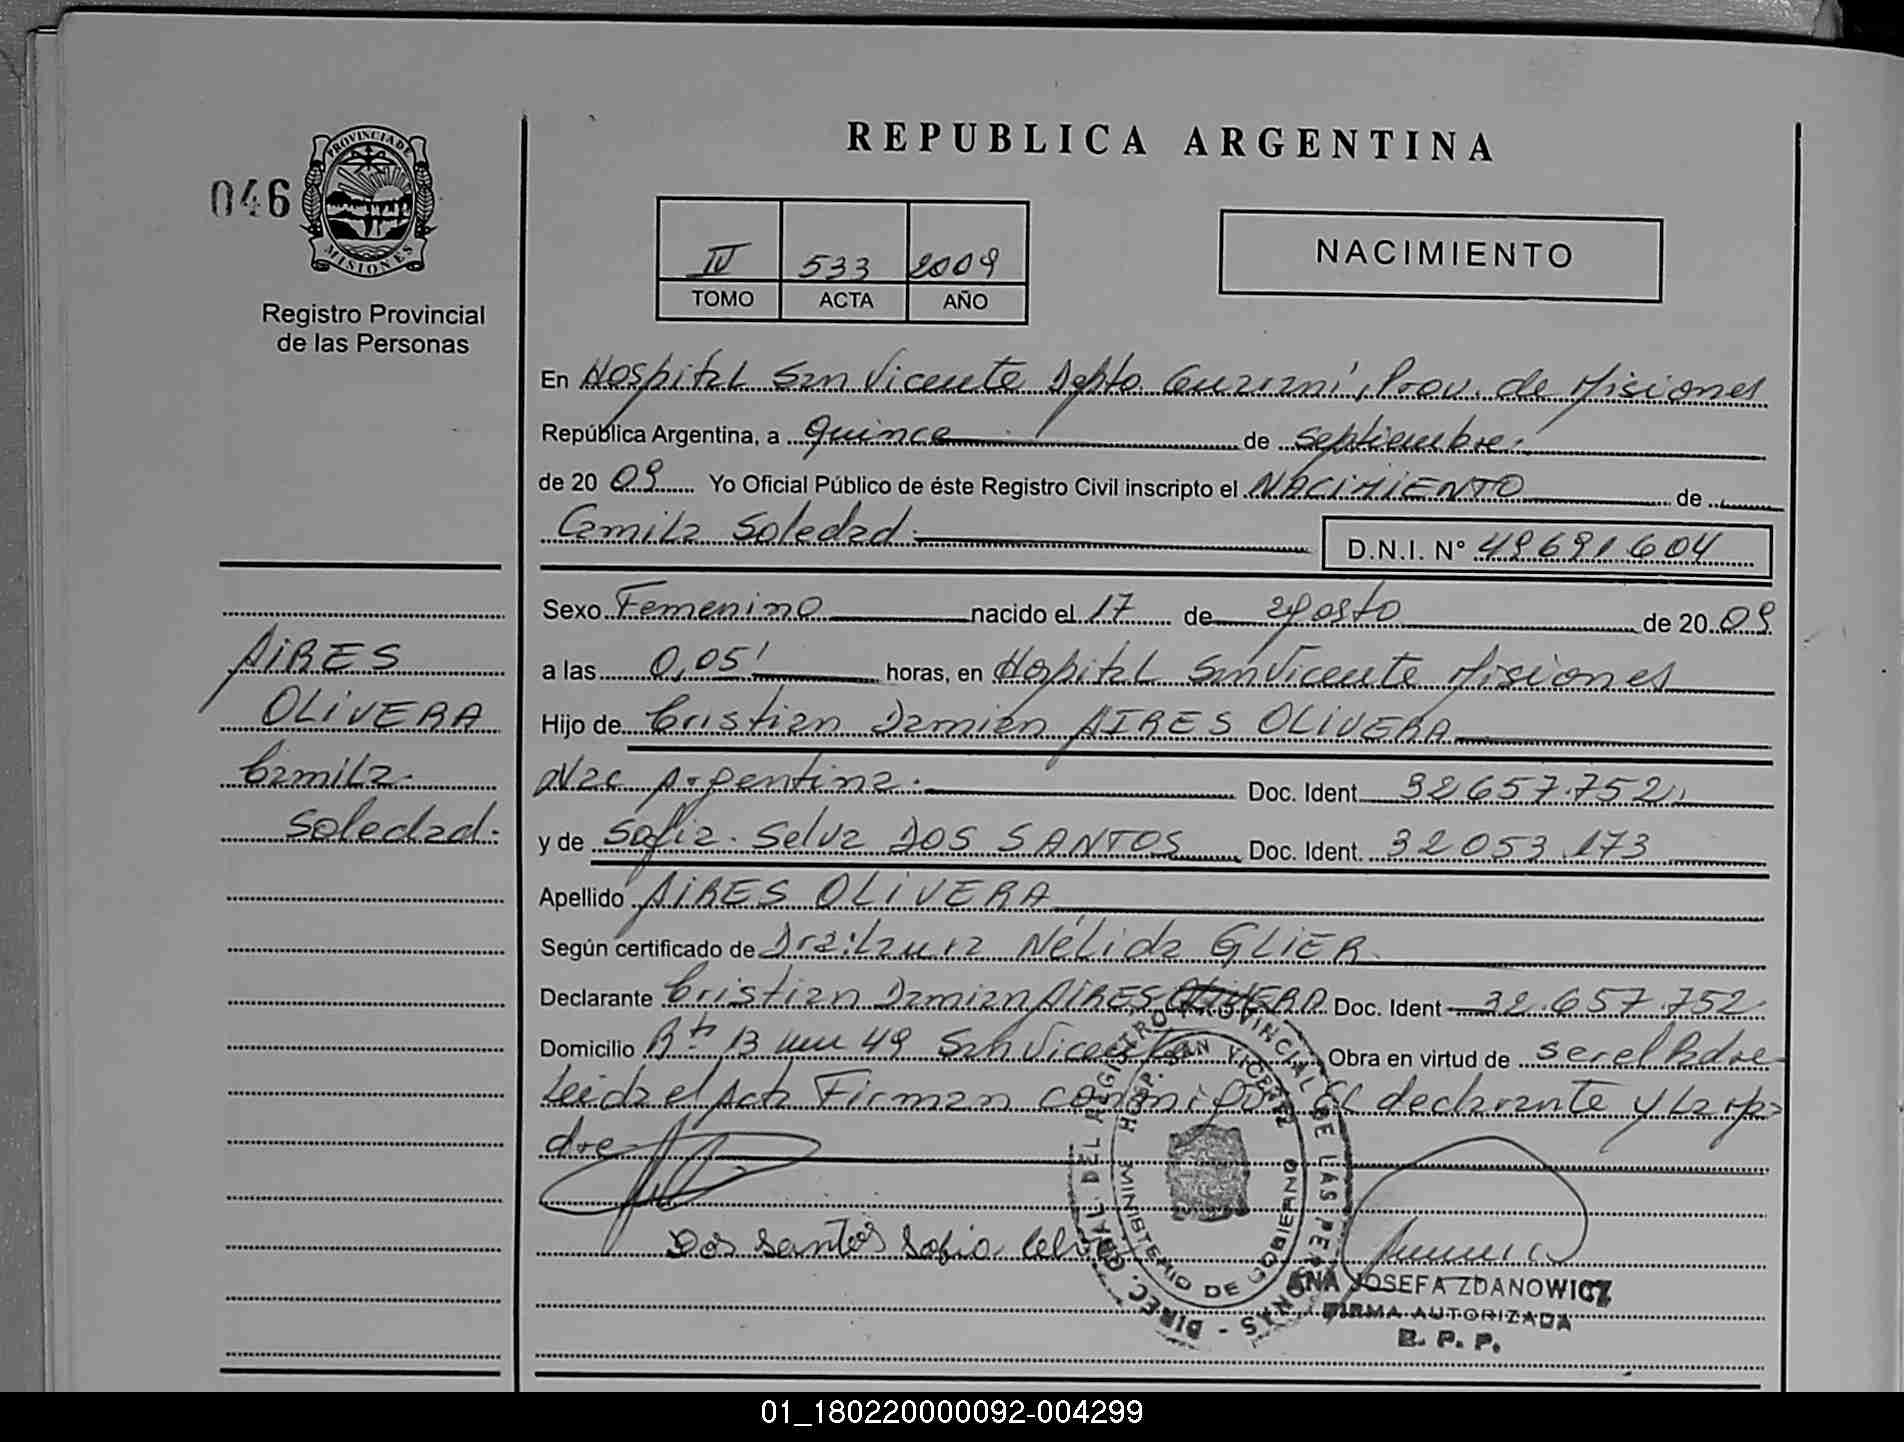 REPUBLICA ARGENTINA
046
PROVINCIA DE
MISIONES
Registro Provincial
de las Personas
IV 533 2009
TOMO ACTA AÑO
NACIMIENTO
En Hospital San Vicente Depto. Guaraní, Prov. de Misiones
República Argentina, a quince de septiembre.
de 20 09 Yo Oficial Público de éste Registro Civil inscripto el NACIMIENTO de
Camila Soledad. D.N.I. N° 49691604
Sexo Femenino nacido el 17 de agosto de 20 09
a las 0,05' horas, en Hospital San Vicente Misiones
Hijo de Cristian Damian AIRES OLIVERA
Nac Argentina. Doc. Ident. 32657.752
y de Sofia Selva DOS SANTOS Doc. Ident. 32053.173
Apellido AIRES OLIVERA
Según certificado de Dra: Laura Nélida GLIER
Declarante Cristian Damian AIRES OLIVERA Doc. Ident 32.657.752.
Domicilio 13 49 San Vicente Obra en virtud de ser el Padre
Leida el Acta Firman conmigo El declarante y La Ma
dre
Dos Santos Sofia
AIRES
OLIVERA
Camila
Soledad.
DIREC. GRAL. DEL REGISTRO PROVINCIAL DE LAS PERSONAS
HOSP. SAN VICENTE
MINISTERIO DE GOBIERNO
ANA JOSEFA ZDANOWICZ
FIRMA AUTORIZADA
R. P. P.
01_180220000092-004299